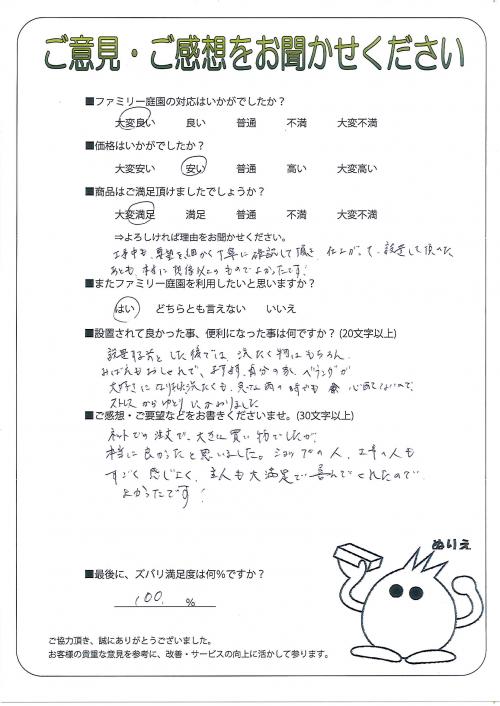 ご意見・ご感想をお聞かせください
■ファミリー庭園の対応はいかがでしたか？
大変良い 良い 普通 不満 大変不満
■価格はいかがでしたか？
大変安い 安い 普通 高い 大変高い
■商品はご満足頂けましたでしょうか？
大変満足 満足 普通 不満 大変不満
⇒よろしければ理由をお聞かせください。
工事中も、要望を細かく丁寧に確認して頂き、仕上がって、設置して頂いた
あとも、本当に想像以上のものでよかったです！
■またファミリー庭園を利用したいと思いますか？
はい どちらとも言えない いいえ
■設置されて良かった事、便利になった事は何ですか？(20文字以上)
設置する前と した後では、洗たく物はもちろん、
おしゃれで、ますます、自分の家、ベランダが
大好きになり 洗たくも、急な雨の時でも 心配ないので、
ストレスからゆとりにかわりました
■ご感想・ご要望などをお書きくださいませ。(30文字以上)
ネットでの注文で、大きな買い物でしたが、
本当に良かったと思いました。ショップの人、工事の人も
すごく感じよく、主人も大満足で喜んでくれたので
よかったです！
ぬりえ
■最後に、ズバリ満足度は何％ですか？
100. %
ご協力頂き、誠にありがとうございました。
お客様の貴重な意見を参考に、改善・サービスの向上に活かして参ります。